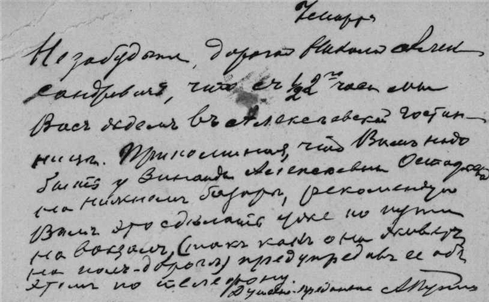 Не забудьте, дорогой Николай Алек
сандровичъ, что съ ½ 2 го часа мы
Васъ ждемъ въ Алексѣевской гостин
ницѣ. Припоминая, что Вамъ надо
быть у Зинаиды Алексѣевны
на нижнемъ базарѣ, рекомендую
Вамъ это сдѣлать уже по пути
на вокзалъ, (такъ какъ она живетъ
на пол-дорогѣ) предупредивъ ее объ
этомъ по телефону.
Душевно-преданный